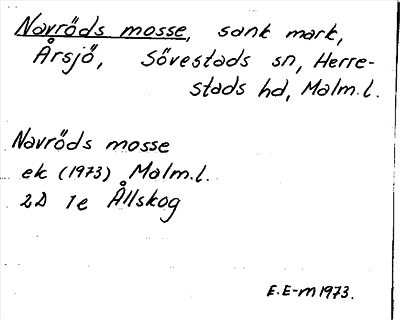 Navröds mosse, sank mark,
Årsjö, Sövestads sn, Herre-
stads hd, Malm.l.
Navröds mosse
ek (1973) Malm.l.
2D 1e Ållskog
E.E-m 1973.